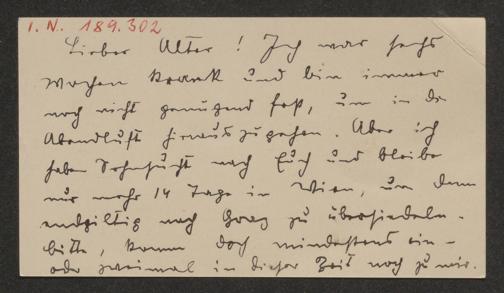 I. N. 189.302
Lieber Alter! Ich war sechs
Wochen krank und bin immer
noch nicht genügend fest, um in die
Abendluft hinauszugehen. Aber ich
habe Sehnsucht nach Euch und bleibe
nur mehr 14 Tage in Wien, um dann
endgiltig nach Graz zu übersiedeln.
bitte, komm doch mindestens ein-
oder zweimal in dieser Zeit noch zu mir.